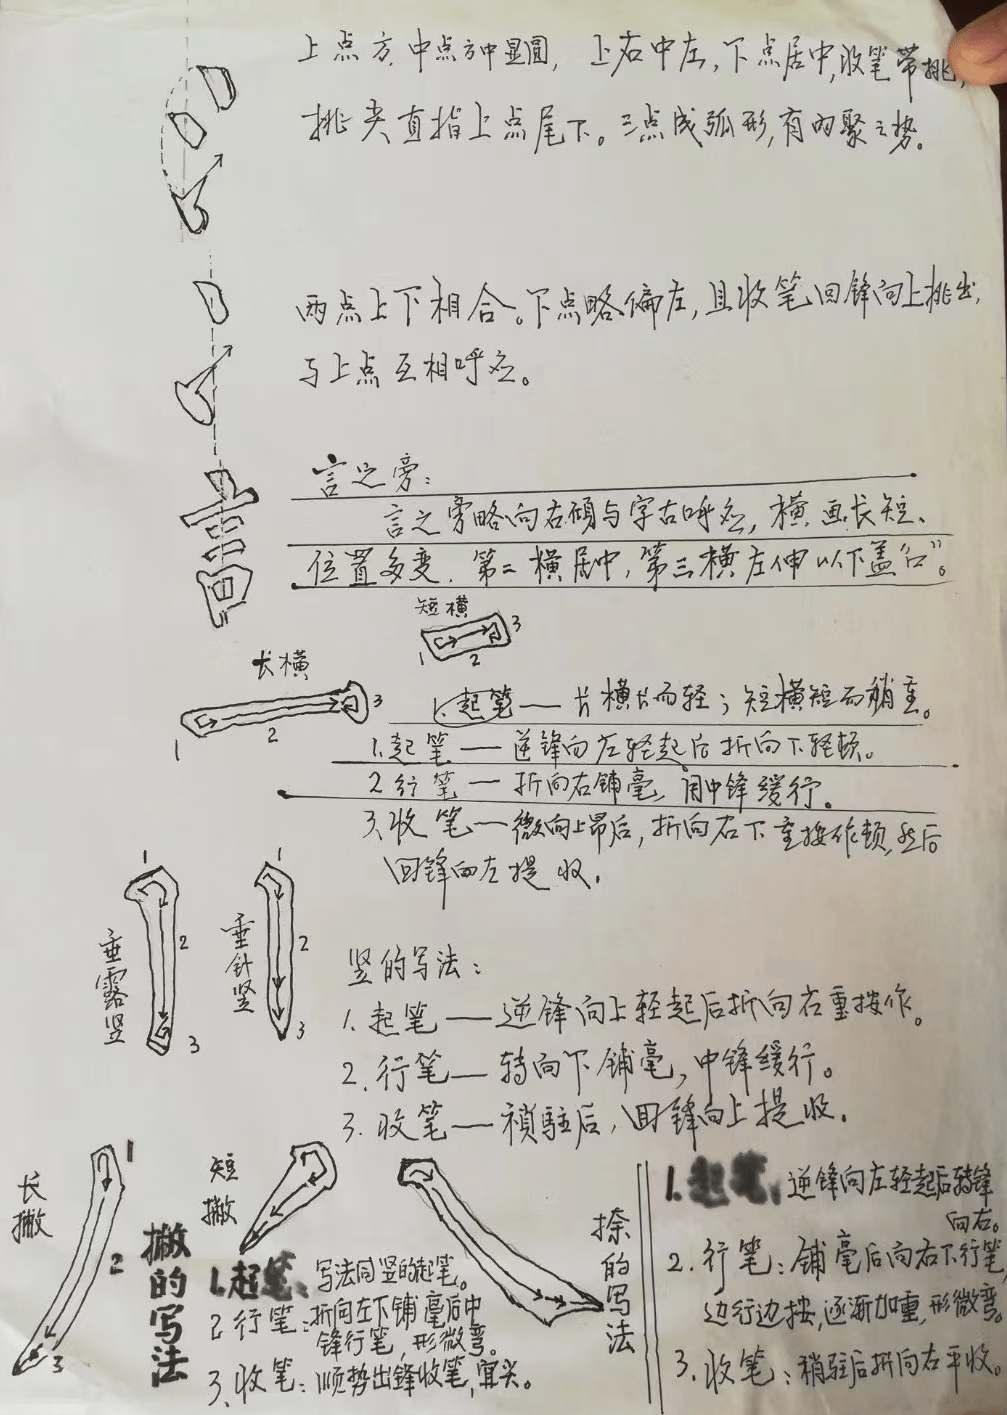 上点方,中点方中显圆,上右中左,下点居中,收笔带挑,
挑尖直指上点尾下。三点成弧形,有内聚之势。
两点上下相合。下点略偏左,且收笔回锋向上挑出,
与上点互相呼应。
言
言之旁:
言之旁略向右倾与字右呼应,横画长短、
位置多变.第二横居中,第三横左伸以下盖“口”。
短横
1
2
3
长横
1
2
3
1.起笔——长横长而轻;短横短而稍重。
1.起笔——逆锋向左轻起后折向下轻顿。
2行笔——折向右铺毫,用中锋缓行。
3、收笔——微向上昂后,折向右下重按作顿,然后
回锋向左提收.
垂露竖
1
2
3
垂针竖
1
2
3
竖的写法:
1.起笔——逆锋向上轻起后折向右重按作。
2.行笔——转向下铺毫,中锋缓行。
3.收笔——稍驻后,回锋向上提收.
长撇
1
2
3
短撇
撇的写法
1.起笔、写法同竖的起笔。
2行笔:折向左下铺毫后中
锋行笔,形微弯。
3.收笔:顺势出锋收笔,宜尖。
捺的写法
1.起笔、逆锋向左轻起后转锋
向右。
2.行笔:铺毫后向右下行笔
边行边按,逐渐加重,形微弯。
3.收笔:稍驻后折向右平收。